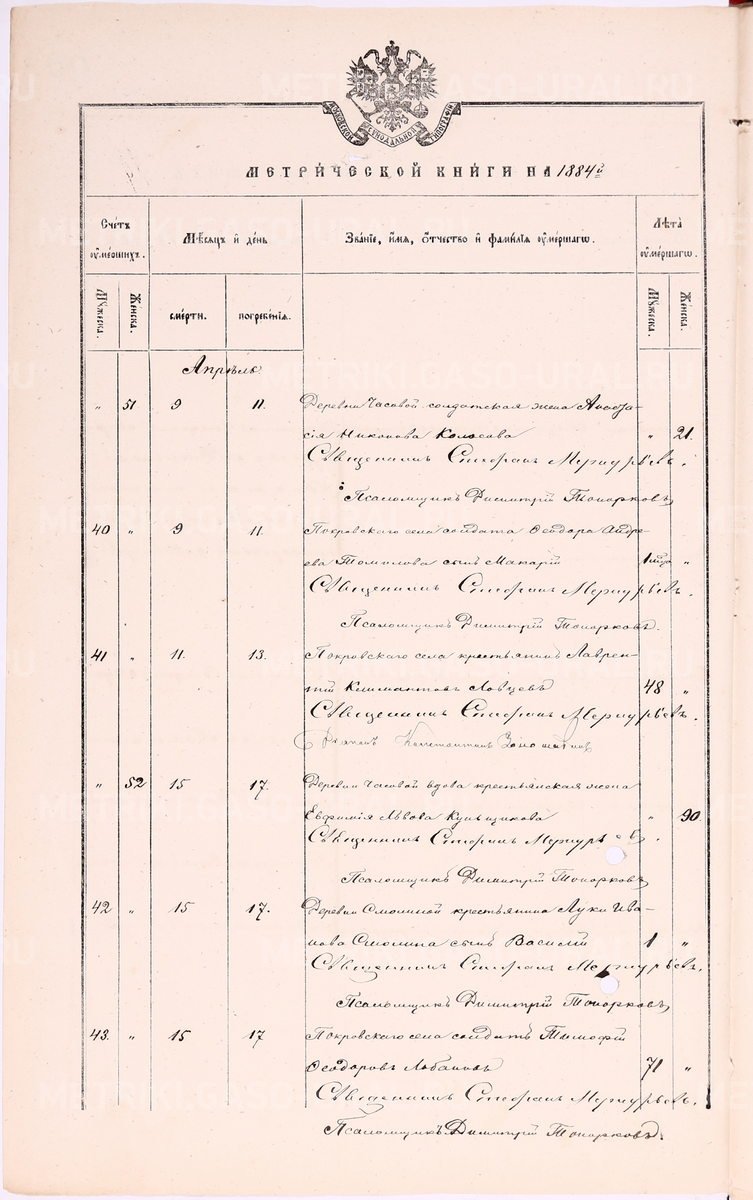 МОСКОВСКОЙ СѴНОДАЛЬНОЙ ТИПОГРАФІИ
МЕТРИ́ЧЕСКОЙ КНИ́ГИ НА 1884й
Счетъ ᲂумершихъ. Мѣсяцъ и день Званіе, имя, отчество и фамилія ᲂумершагѡ. Лѣта ᲂумершагѡ.
Мужеска. Женска. смерти. погребенія. Мужеска. Женска.
Апрѣль
" 51 9 11. Деревни Часовой солдатская жена Анаста-
сія Никонова Колосова " 21.
Священникъ Стефанъ Меркурьевъ.
Псаломщикъ Димитрій Топорковъ
40 " 9 11. Покровскаго села солдата Ѳеодора Андре-
ева Томилова сынъ Макарій "
Священникъ Стефанъ Меркурьевъ.
Псаломщикъ Димитрій Топорковъ.
41 " 11. 13. Покровскаго села крестьянинъ Лаврен-
тій Климантовъ Ловцевъ 48 "
Священникъ Стефанъ Меркурьевъ.
Константинъ
" 52 15 17. Деревни Часовой вдова крестьянская жена
Евфимія Львова " 90
Священникъ Стефанъ Меркурьевъ.
Псаломщикъ Димитрій Топорковъ
42 " 15 17. Деревни Смолиной крестьянина Луки Ива-
нова Смолина сынъ Василій 1 "
Священникъ Стефанъ Меркурьевъ.
Псаломщикъ Димитрій Топорковъ
43. " 15 17 Покровскаго села солдатъ Тимофій
Ѳеодоровъ Лобановъ 71 "
Священникъ Стефанъ Меркурьевъ.
Псаломщикъ Димитрій Топорковъ.